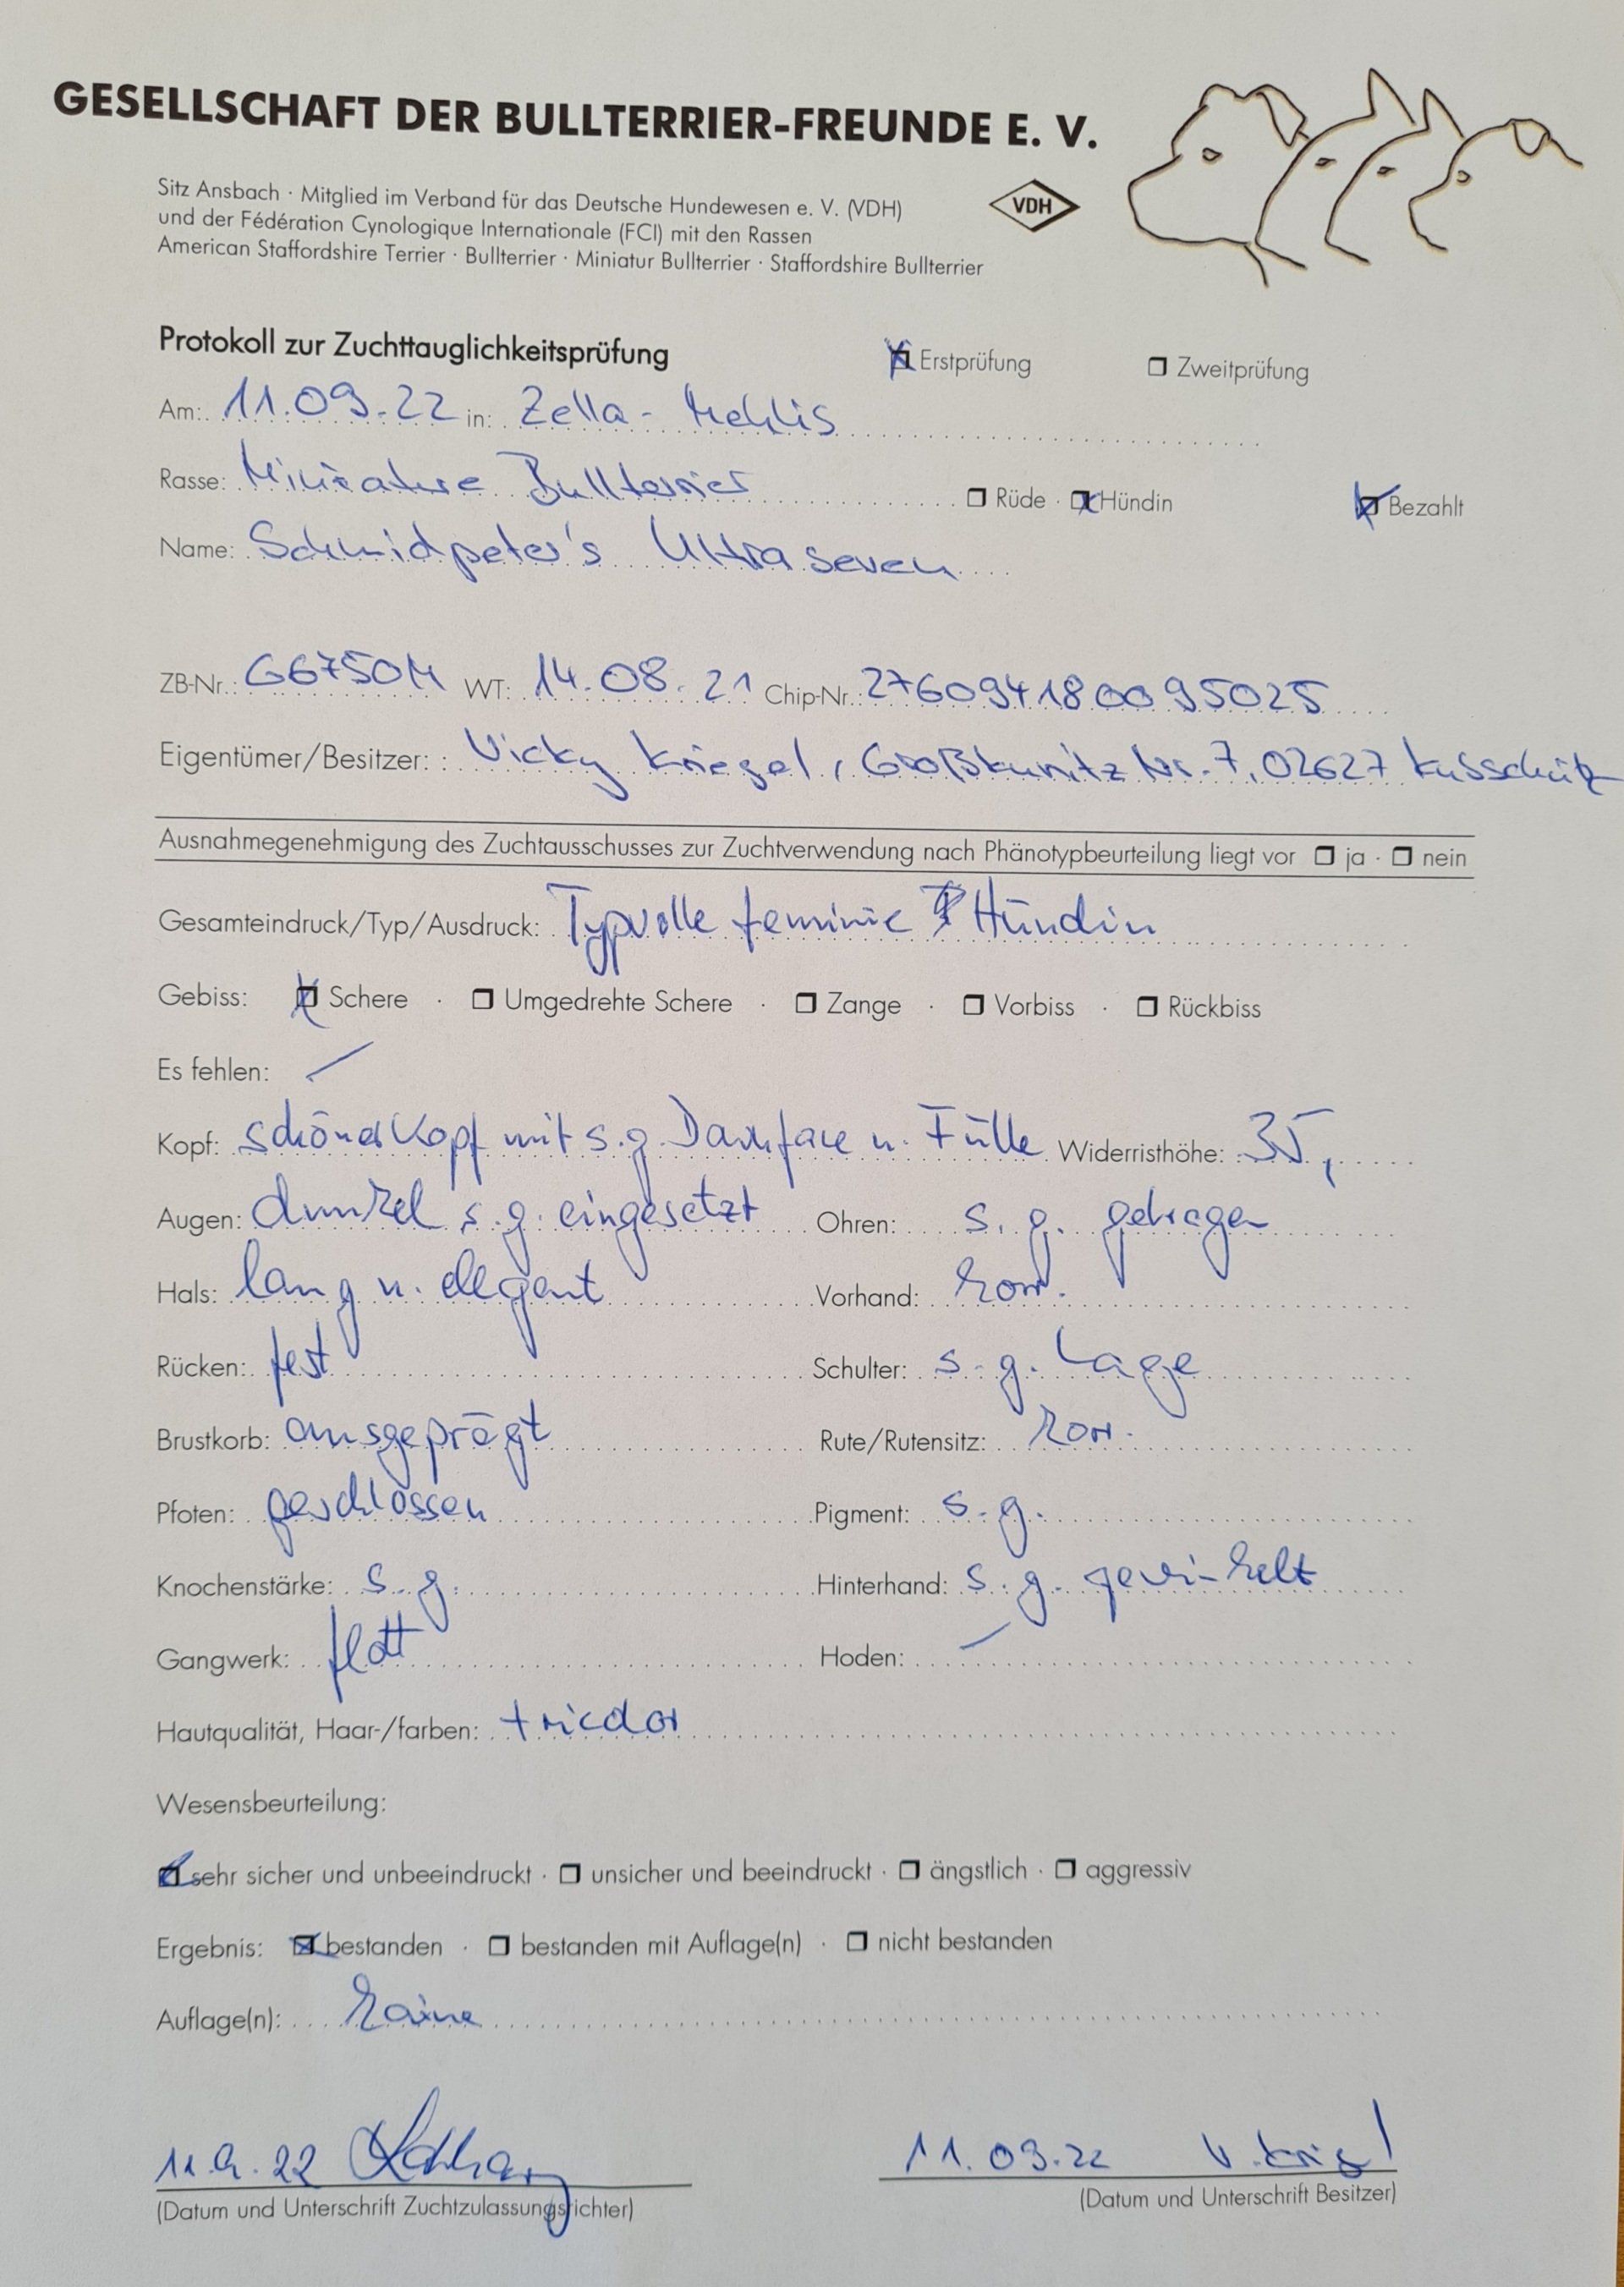 GESELLSCHAFT DER BULLTERRIER-FREUNDE E. V.
Sitz Ansbach · Mitglied im Verband für das Deutsche Hundewesen e. V. (VDH)
und der Fédération Cynologique Internationale (FCI) mit den Rassen
American Staffordshire Terrier · Bullterrier · Miniatur Bullterrier · Staffordshire Bullterrier
VDH
Protokoll zur Zuchttauglichkeitsprüfung ☒ Erstprüfung ☐ Zweitprüfung
Am: 11.09.22 in: Zella-Mehlis
Rasse: Miniature Bullterrier ☐ Rüde · ☒ Hündin ☒ Bezahlt
Name: Schmidpeter's Ultraseven
ZB-Nr.: G6750M WT: 14.08.21 Chip-Nr.: 276094180095025
Eigentümer/Besitzer: : Vicky Kriegel, Großkunitz Nr. 7, 02627
Ausnahmegenehmigung des Zuchtausschusses zur Zuchtverwendung nach Phänotypbeurteilung liegt vor ☐ ja · ☐ nein
Gesamteindruck/Typ/Ausdruck: Typvolle feminine Hündin
Gebiss: ☒ Schere · ☐ Umgedrehte Schere · ☐ Zange · ☐ Vorbiss · ☐ Rückbiss
Es fehlen: /
Kopf: schöner Kopf mit s.g. Downface u. Fülle Widerristhöhe: 35,
Augen: dunkel s.g. eingesetzt Ohren: s.g. getragen
Hals: lang u. elegant Vorhand: korr.
Rücken: fest Schulter: s.g. Lage
Brustkorb: ausgeprägt Rute/Rutensitz: korr.
Pfoten: geschlossen Pigment: s.g.
Knochenstärke: s.g. Hinterhand: s.g. gewinkelt
Gangwerk: flott Hoden: /
Hautqualität, Haar-/farben: tricolor
Wesensbeurteilung:
☒ sehr sicher und unbeeindruckt · ☐ unsicher und beeindruckt · ☐ ängstlich · ☐ aggressiv
Ergebnis: ☒ bestanden · ☐ bestanden mit Auflage(n) · ☐ nicht bestanden
Auflage(n): keine
11.9.22 11.09.22 V. Kriegel
(Datum und Unterschrift Zuchtzulassungsrichter) (Datum und Unterschrift Besitzer)